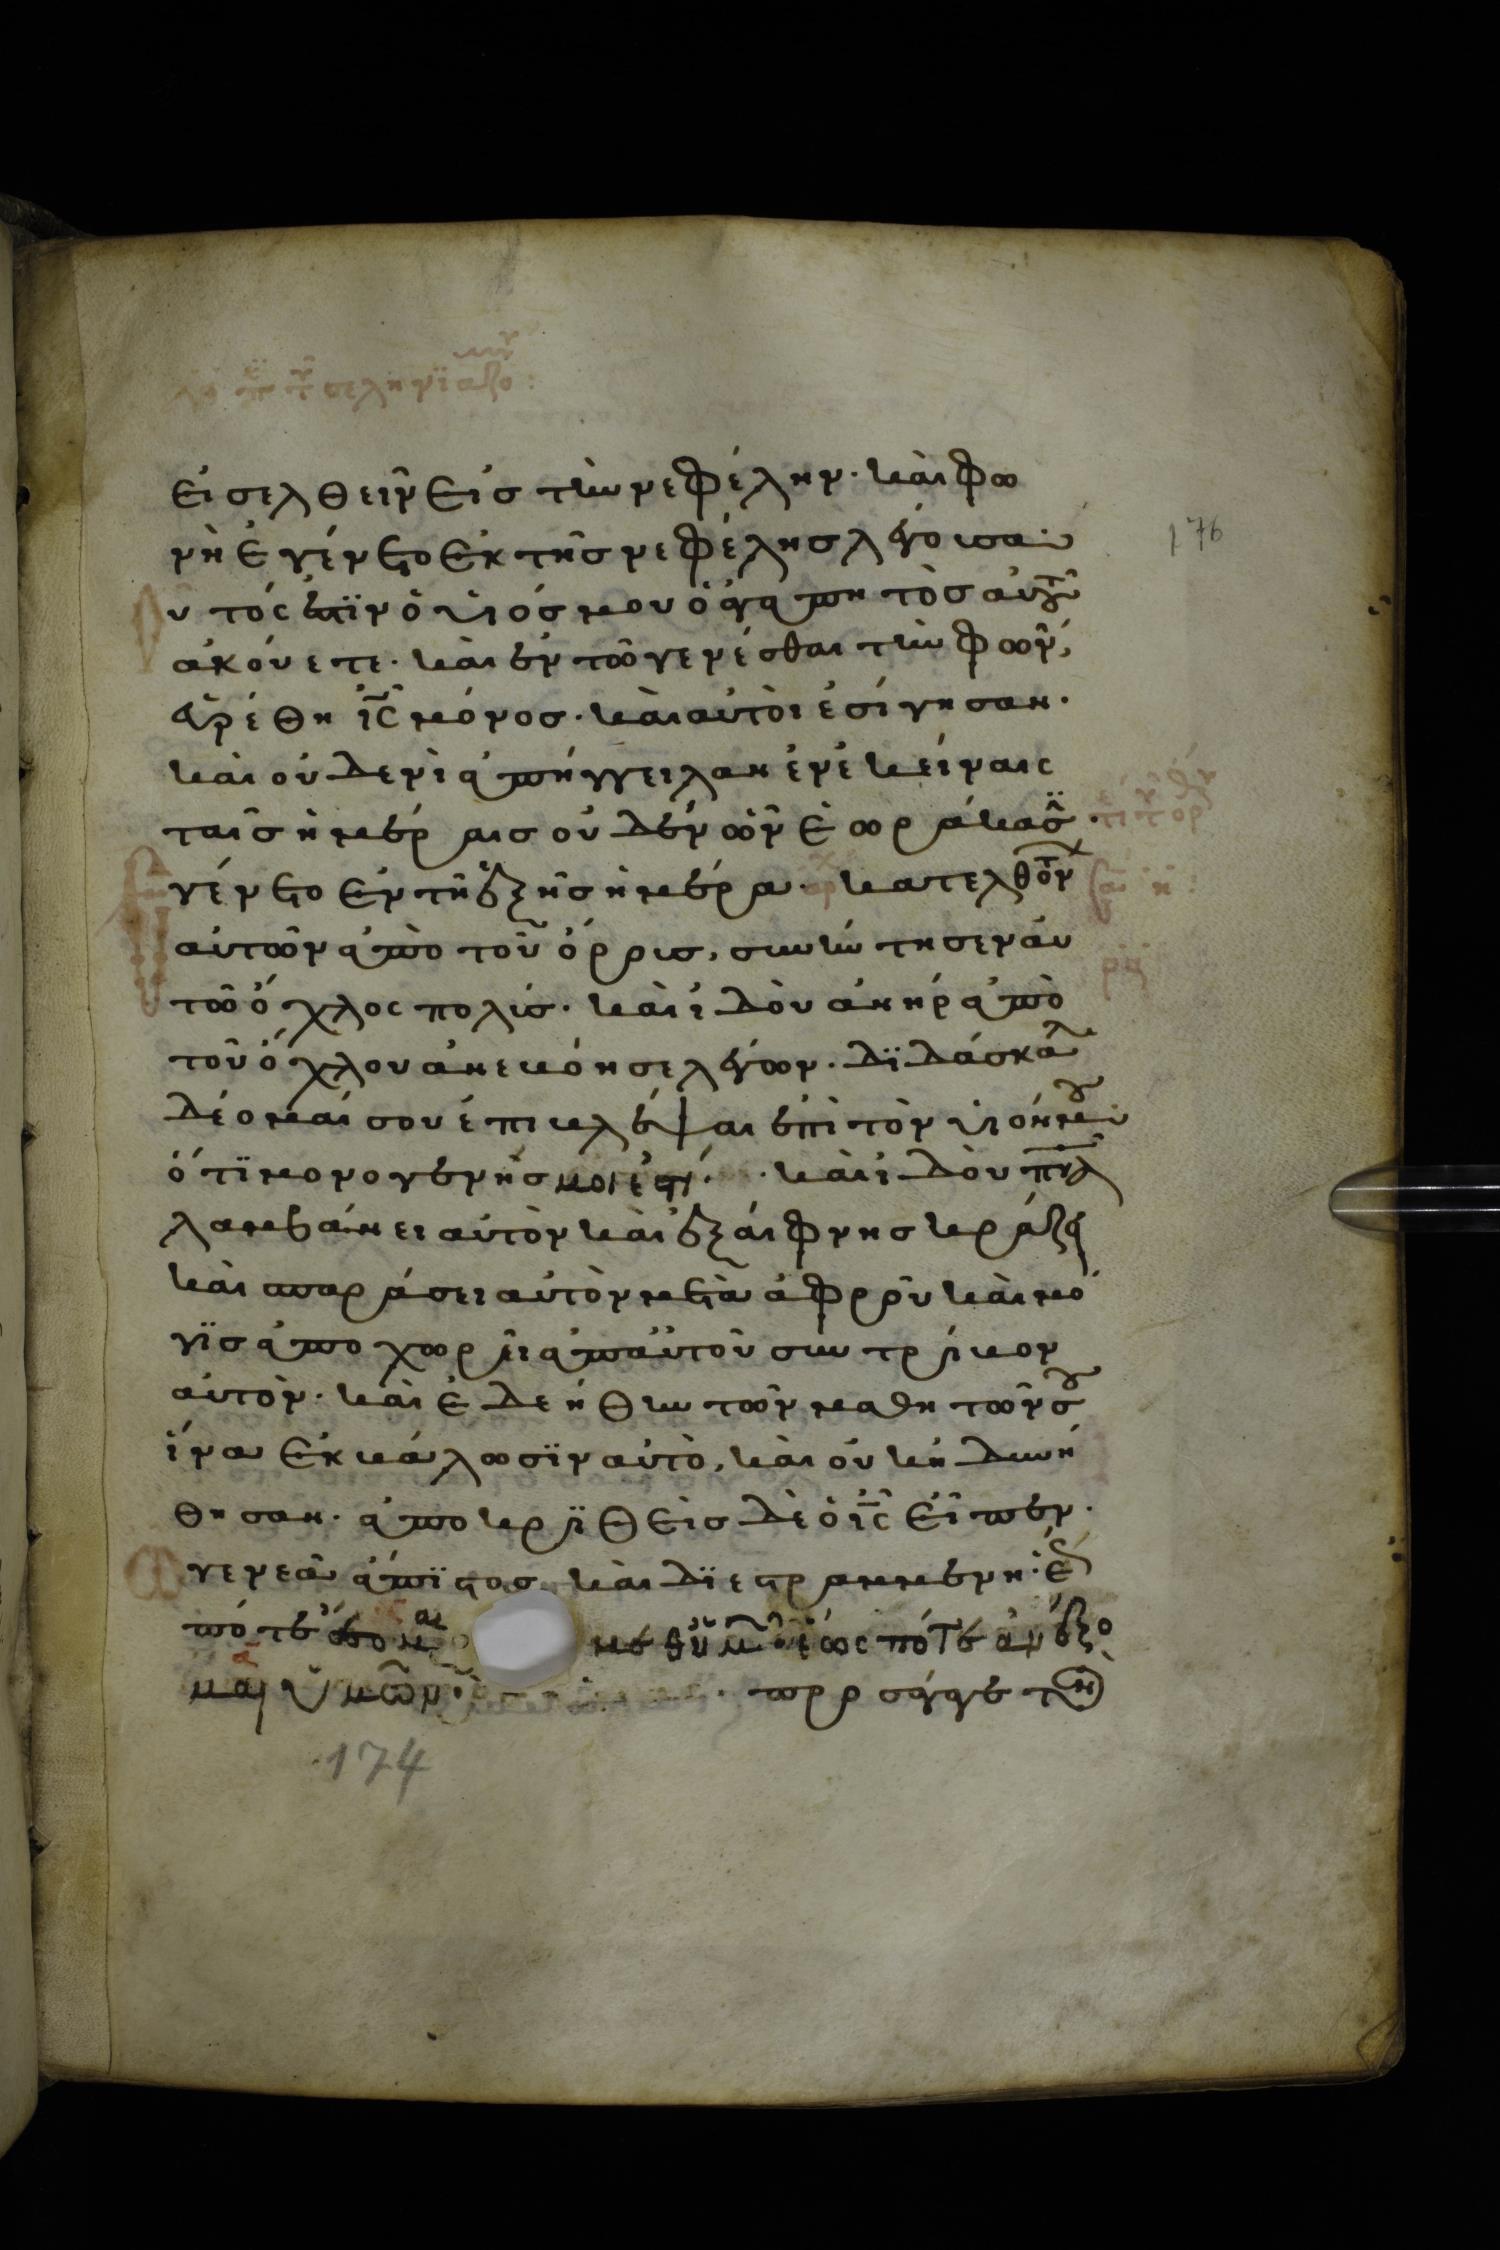 εἰσελθεῖν εἰς τὴν νεφέλην· καὶ φω
νὴ ἐγένετο ἐκ τῆς νεφέλης λέγουσα·
Οὗτός ἐστϊν ὁ υἱός μου ὁ ἀγαπητὸς αὐτοῦ
ἀκούετε· καὶ ἐν τῶ γενέσθαι τὴν φωνὴν,
εὑρέθη ἰς μόνος· καὶ αὐτοὶ ἐσίγησαν·
καὶ οὐδενὶ ἀπήγγειλαν ἐν ἐκείναις
ταῖς ἡμέραις οὐδὲν ὧν ἑωράκασϊ·
γένετο ἐν τῆ ἑξῆς ἡμέρα· κατελθόντων
αὐτῶν ἀπὸ τοῦ ὄρους, συνήντησεν αὐ
τῶ ὄχλος πολύς· καὶ ἰδοὺ ἀνὴρ ἀπὸ
τοῦ ὄχλου ἀνεβόησε λέγων· δϊδάσκαλε
δέομαί σου ἐπιβλέψαι ἐπὶ τὸν υἱόν μου·
ὅτϊ μονογενής μοι ἐστί· καὶ ἰδοὺ πνα
λαμβάνει αὐτὸν καὶ ἐξαίφνης κράζει
καὶ σπαράσει αὐτὸν μετὰ ἀφροῦ καὶ μό
γϊς ἀποχωρεῖ ἀπ' αὐτοῦ συντρίβον
αὐτόν· καὶ ἐδεήθην τῶν μαθητῶν σου
ἵνα ἐκβάλωσϊν αὐτὸ, καὶ οὐκ ἠδυνή
θησαν· ἀποκρϊθεὶς δὲ ὁ ἰς εἶπεν·
Ὦ γενεὰ ἄπϊστος καὶ δϊεστραμμένη· ἕως
πότε ἔσομαι μεθ' ὑμῶν· ἕως πότε ἀνέξο
μαι ὑμῶν· προσάγαγε τὸν
174
176